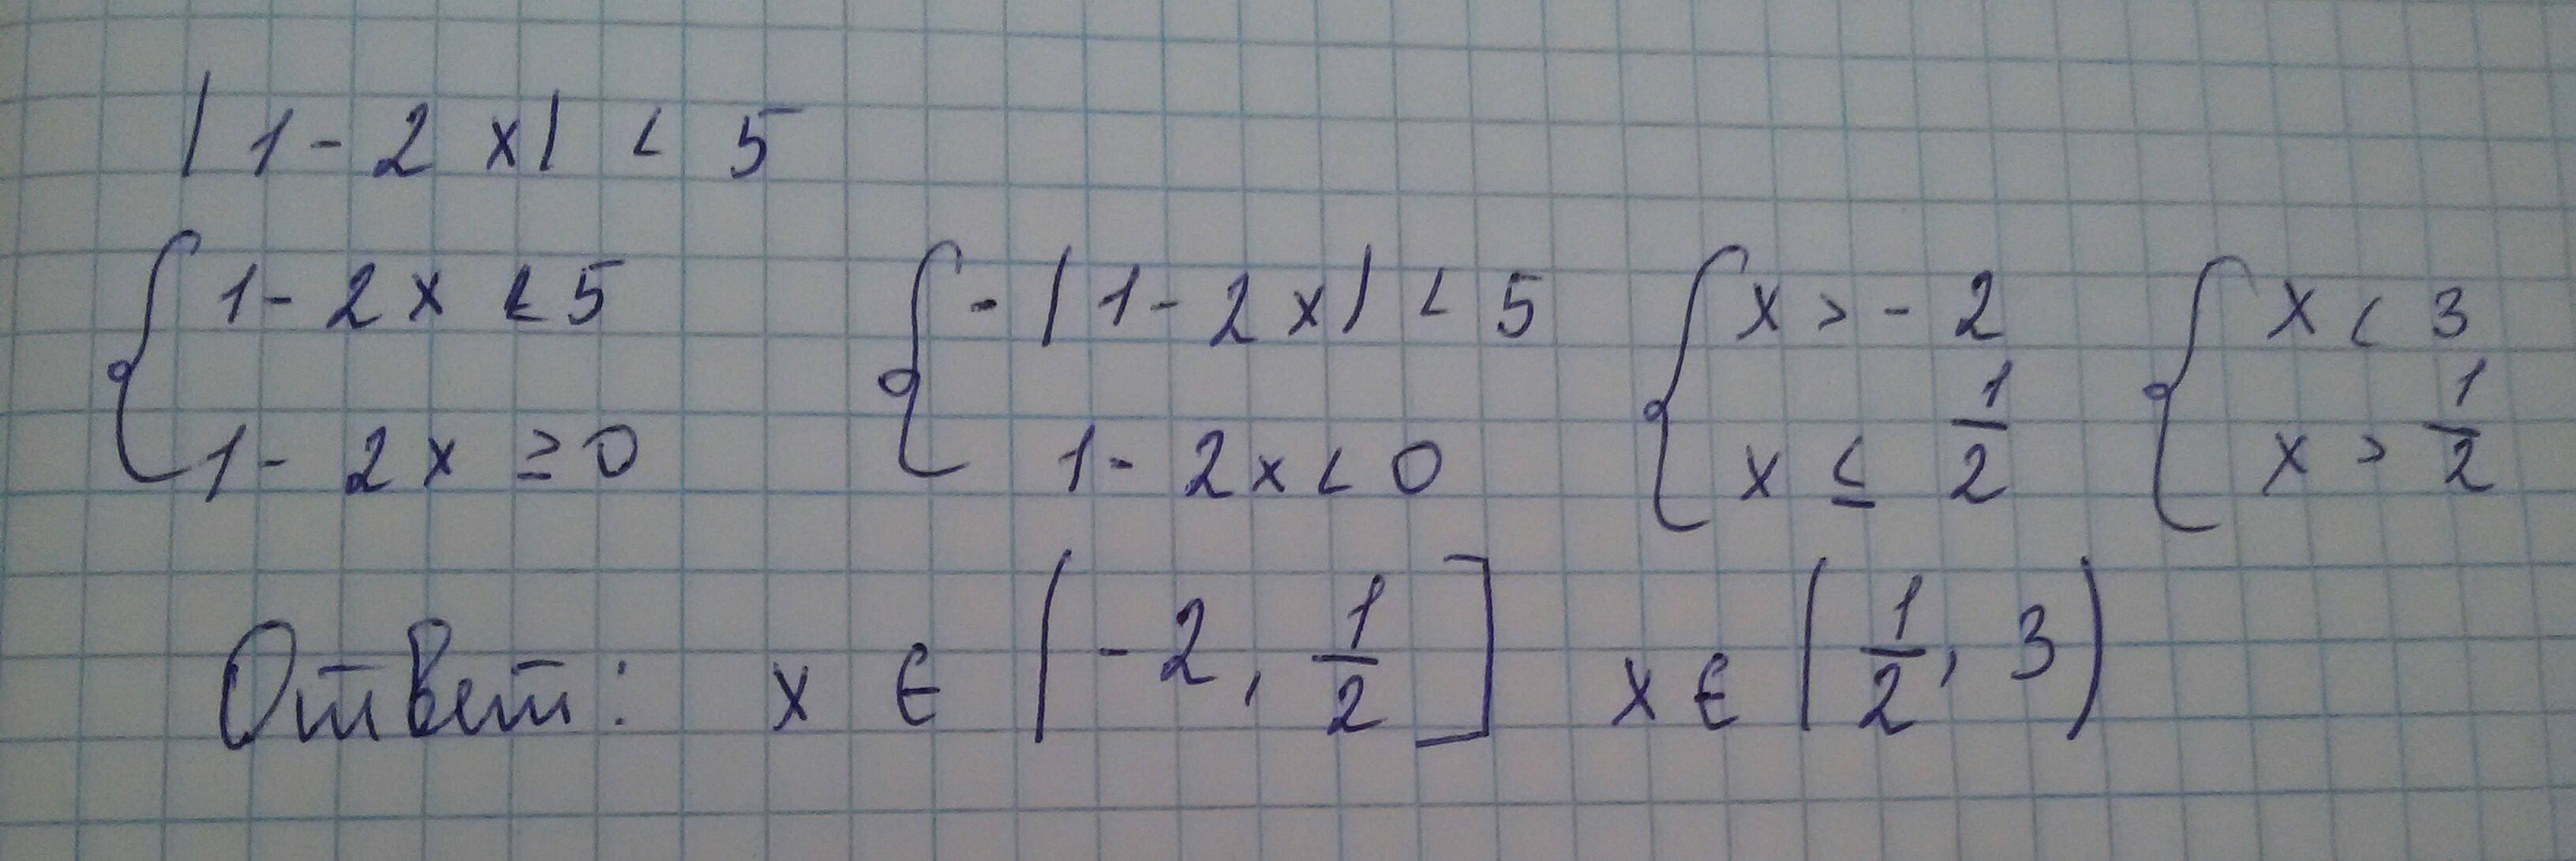 |1-2x| < 5
{ 1-2x < 5 { -|1-2x| < 5 { x > -2 { x < 3
1-2x ≥ 0 1-2x < 0 x ≤ 1/2 x > 1/2
Ответ: x ∈ (-2, 1/2] x ∈ (1/2, 3)